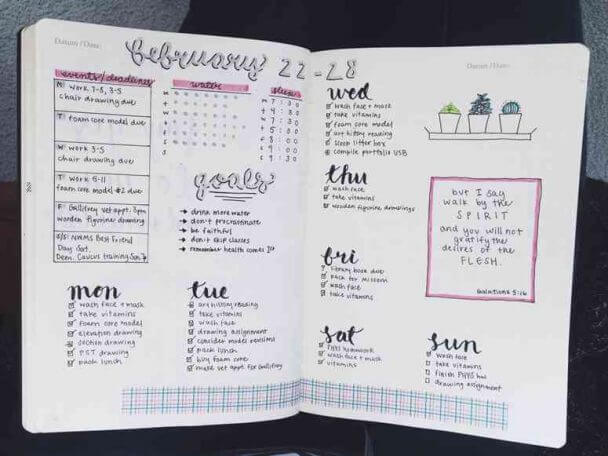 Datum / Date:
february 22-28
events/deadlines
M: work 7-8, 3-5
chair drawing due
T: foam core model due
W: work 3-5
chair drawing due
T: work 5-11
foam core model #2 due
F: Gallifrey vet appt. 3pm
wooden figurine drawing
S/S: NWMS Best Friend
Day Sat.
Dem. Caucus training Sun
water
m
t
w
t
f
s
s
sleep
m 7:30
t 4:30
w 7:30
t 5:00
f 8:00
s 9:00
s 9:30
goals
→ drink more water
→ don't procrastinate
→ be faithful
→ don't skip classes
→ remember health comes 1st
mon
wash face + mask
take vitamins
foam core model
elevation drawing
section drawing
PST drawing
pack lunch
tue
art history reading
take vitamins
wash face
drawing assignment
consider model revisions
pack lunch
buy foam core
make vet appt for Gallifrey
Datum / Date:
wed
wash face + mask
take vitamins
foam core model
art history reading
scoop litter box
compile portfolio USB
thu
wash face
take vitamins
wooden figurine drawings
fri
library book due
pack for missom
wash face
take vitamins
sat
PHYS homework
wash face + mask
vitamins
sun
wash face
take vitamins
finish PHYS hw
drawing assignment
but I say
walk by the
SPIRIT
and you will not
gratify the
desires of the
FLESH.
Galatians 5:16